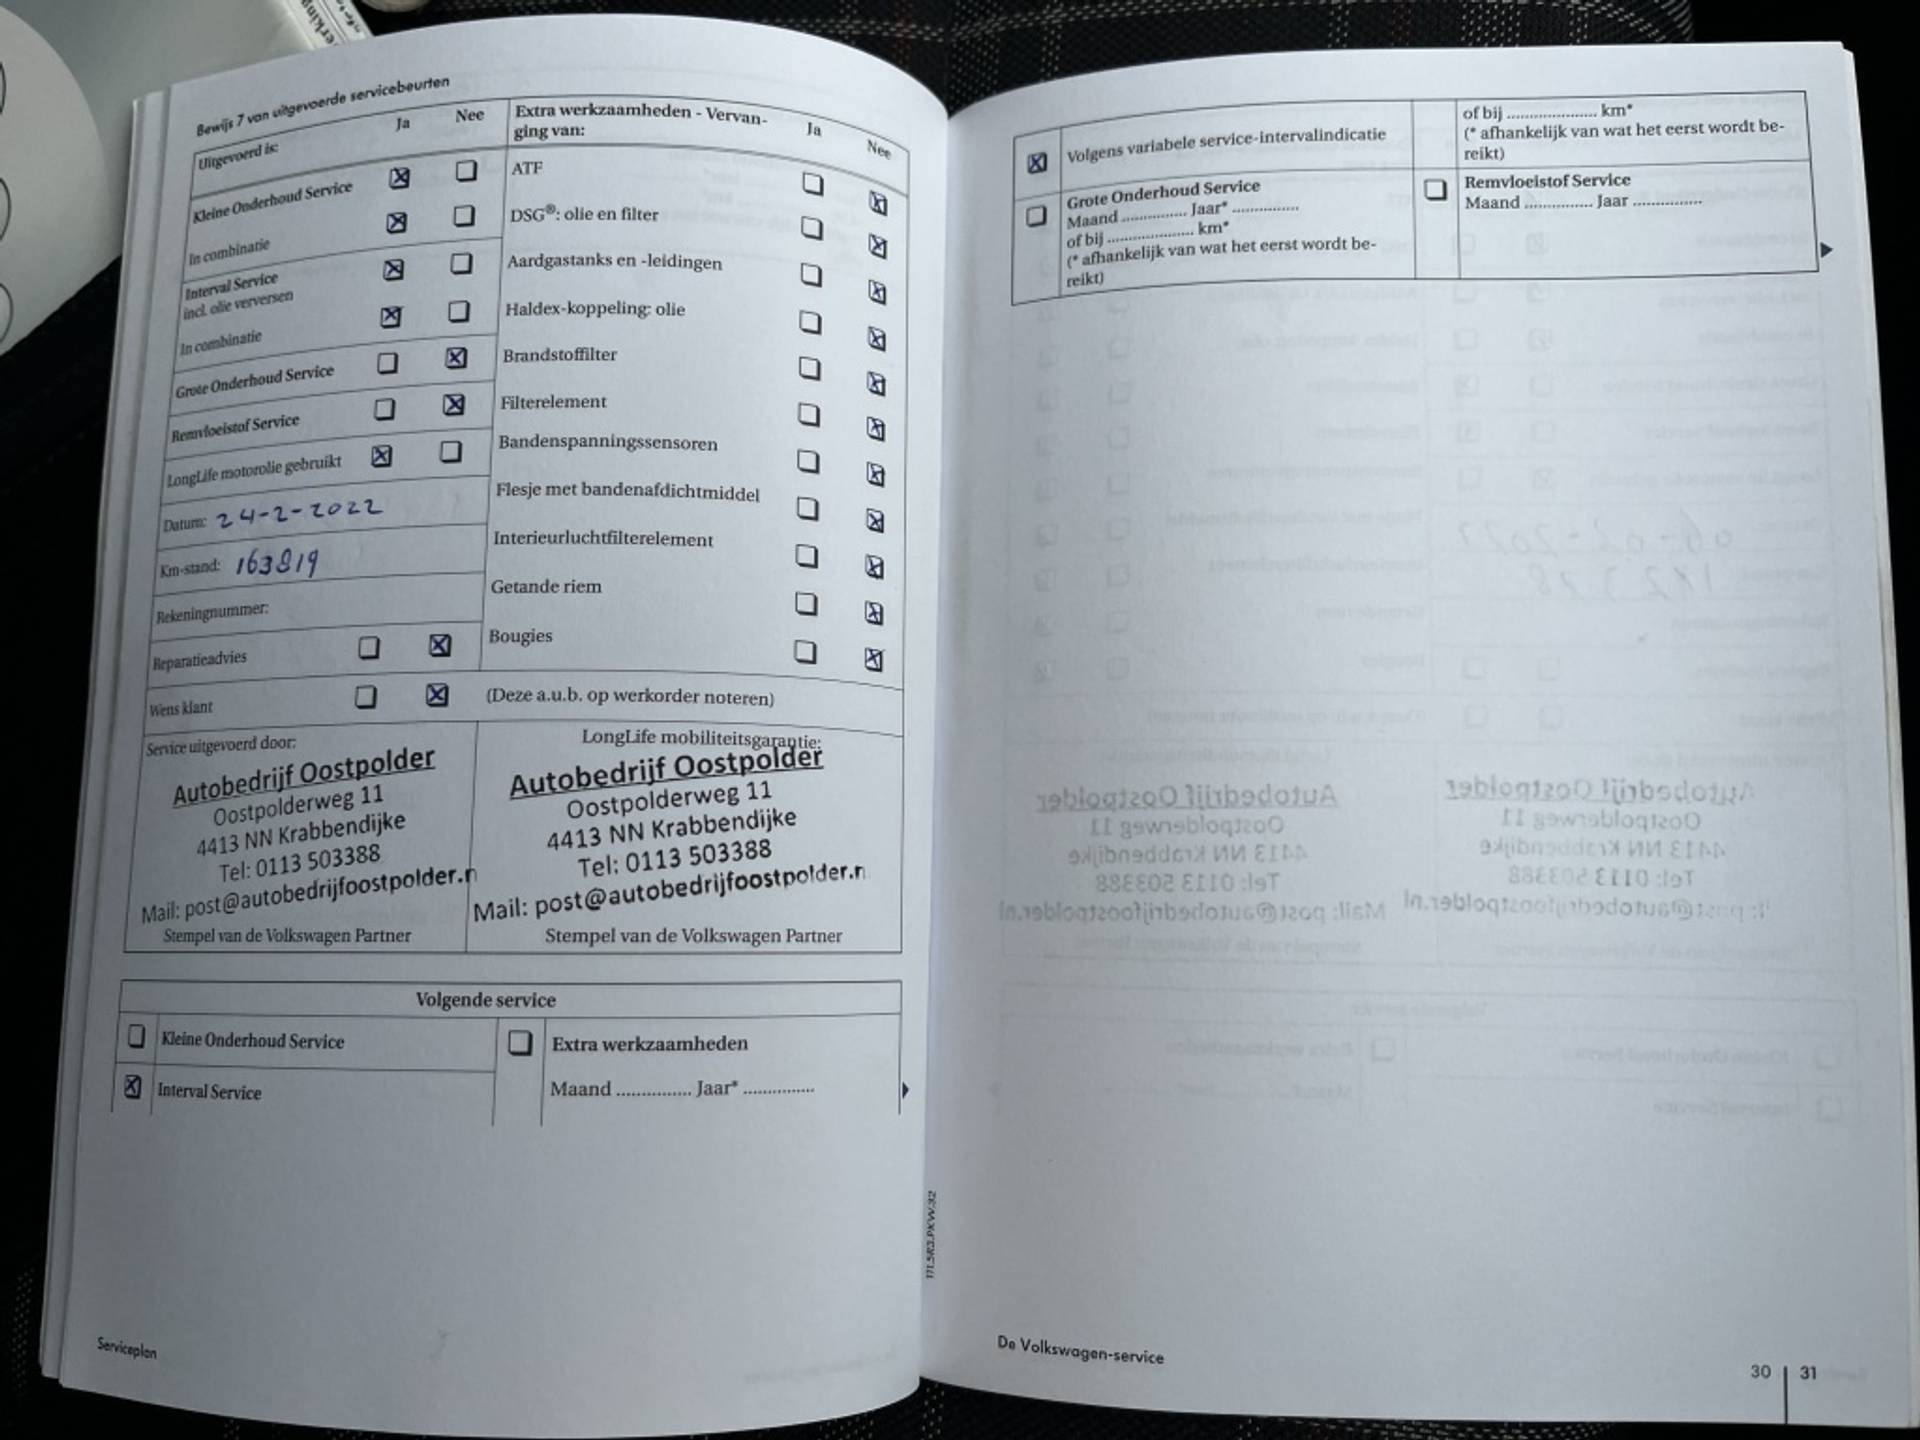 Bewijs 7 van uitgevoerde servicebeurten
Uitgevoerd is:
Ja
Nee
Kleine Onderhoud Service
In combinatie
Interval Service
incl. olie verversen
In combinatie
Grote Onderhoud Service
Remvloeistof Service
LongLife motorolie gebruikt
Datum: 24-2-2022
Km-stand: 163819
Rekeningnummer:
Reparatieadvies
Wens klant
(Deze a.u.b. op werkorder noteren)
Extra werkzaamheden - Vervan-
ging van:
Ja
Nee
ATF
DSG®: olie en filter
Aardgastanks en -leidingen
Haldex-koppeling: olie
Brandstoffilter
Filterelement
Bandenspanningssensoren
Flesje met bandenafdichtmiddel
Interieurluchtfilterelement
Getande riem
Bougies
Service uitgevoerd door:
Autobedrijf Oostpolder
Oostpolderweg 11
4413 NN Krabbendijke
Tel: 0113 503388
Mail: post@autobedrijfoostpolder.n
Stempel van de Volkswagen Partner
LongLife mobiliteitsgarantie:
Autobedrijf Oostpolder
Oostpolderweg 11
4413 NN Krabbendijke
Tel: 0113 503388
Mail: post@autobedrijfoostpolder.n
Stempel van de Volkswagen Partner
Volgende service
Kleine Onderhoud Service
Interval Service
Extra werkzaamheden
Maand ............... Jaar* ...............
Serviceplan
171.5R3.PKW.32
Volgens variabele service-intervalindicatie
Grote Onderhoud Service
Maand ............... Jaar* ...............
of bij .................... km*
(* afhankelijk van wat het eerst wordt be-
reikt)
of bij .................... km*
(* afhankelijk van wat het eerst wordt be-
reikt)
Remvloeistof Service
Maand ............... Jaar ...............
De Volkswagen-service
30 | 31